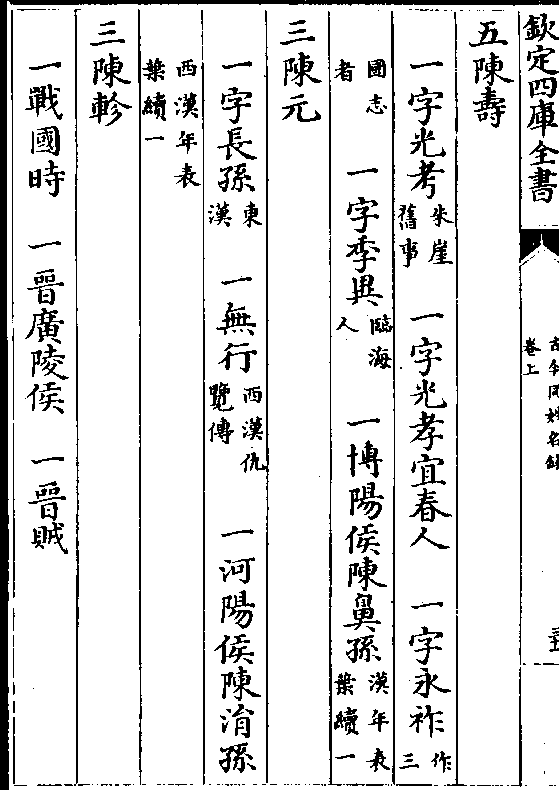 欽定四庫全書
古今同姓名錄
卷上
五陳壽
一字光考朱崖舊事 一字光孝宜春人 一字永祚作三
國志者 一字季與臨海人 一博陽侯陳鼻孫漢年表葉續一
三陳元
一字長孫東漢 一無行西漢仇覽傳 一河陽侯陳涓孫
西漢年表葉續一
三陳軫
一戰國時 一晉廣陵侯 一晉賊